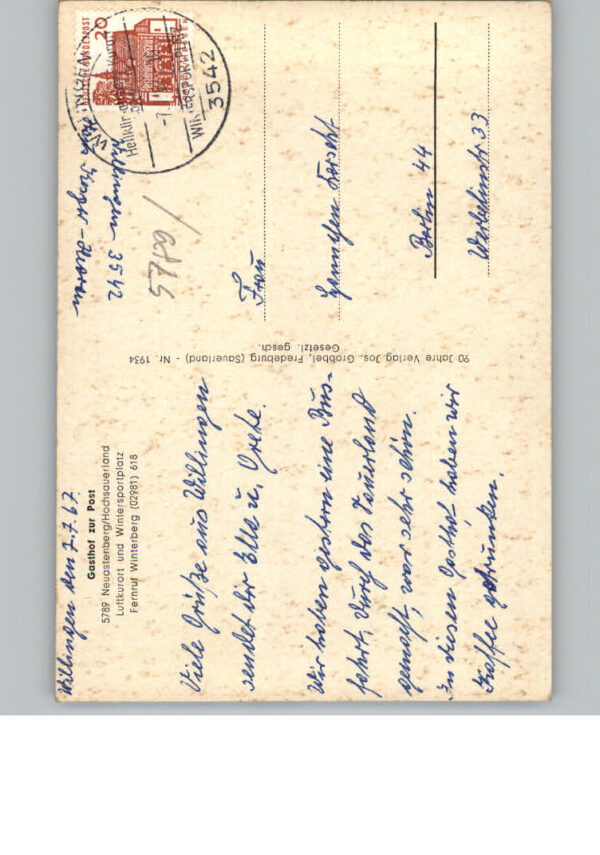 Willingen den 2.7.67.
Gasthof zur Post
5789 Neuastenberg/Hochsauerland
Luftkurort und Wintersportplatz
Fernruf Winterberg (02981) 618
Viele Grüße aus Willingen
sendet dir Ella u. Grete.
Wir haben gestern eine Bus-
fahrt, durch das Sauerland
gemacht, war sehr schön.
In diesen Gasthof haben wir
Kaffee getrunken.
90 Jahre Verlag Jos. Grobbel, Fredeburg (Sauerland) - Nr. 1934
Gesetzl. gesch.
Willingen 3542
5789
DEUTSCHE BUNDESPOST
20
3542
Frau
Berlin 44
Werbellinstr 33